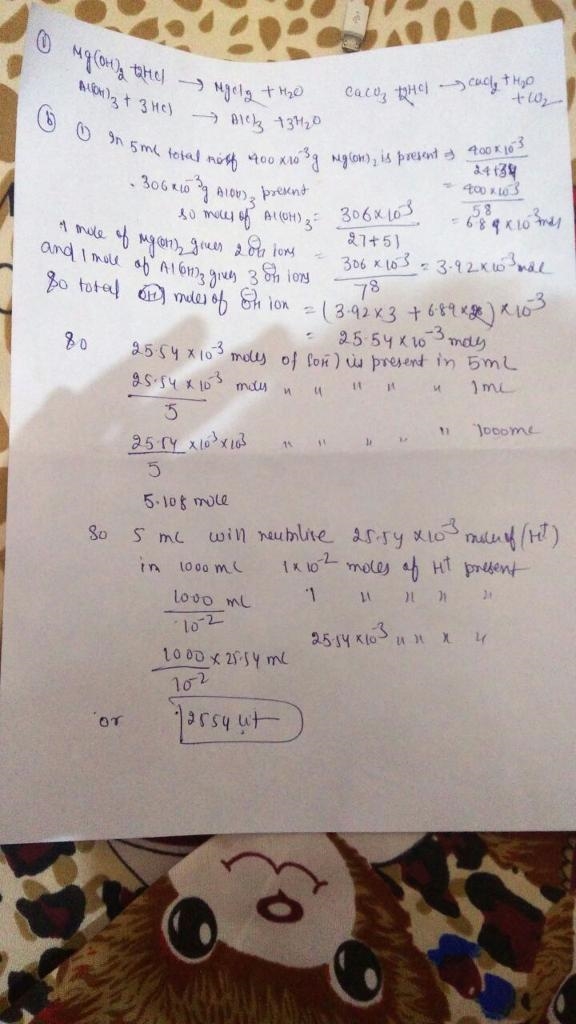 ① Mg(OH)2 + 2HCl → MgCl2 + H2O CaCO3 + 2HCl → CaCl2 + H2O + CO2
Al(OH)3 + 3HCl → AlCl3 + 3H2O
ⓑ ① In 5mL total 400 x 10^-3 g Mg(OH)2 is present ⇒ 400 x 10^-3 / 24+34
. 306 x 10^-3 g Al(OH)3 present = 400 x 10^-3 / 58
so moles of Al(OH)3 = 306 x 10^-3 / 27+51 = 6.89 x 10^-3 moles
1 mole of Mg(OH)2 gives 2 OH ions = 306 x 10^-3 / 78 = 3.92 x 10^-3 mole
and 1 mole of Al(OH)3 gives 3 OH ions
So total moles of OH ion = (3.92 x 3 + 6.89 x 2) x 10^-3
= 25.54 x 10^-3 moles
So 25.54 x 10^-3 moles of (OH) is present in 5mL
25.54 x 10^-3 / 5 moles " " " " " 1mL
25.54 x 10^-3 x 10^3 / 5 " " " " " 1000mL
5.108 mole
So 5 mL will neutrlise 25.54 x 10^-3 moles of (H+)
in 1000 mL 1 x 10^-2 moles of H+ present
1000 / 10^-2 mL 1 " " " "
25.54 x 10^-3 " " " "
1000 / 10^-2 x 25.54 mL
or 2554 Lit